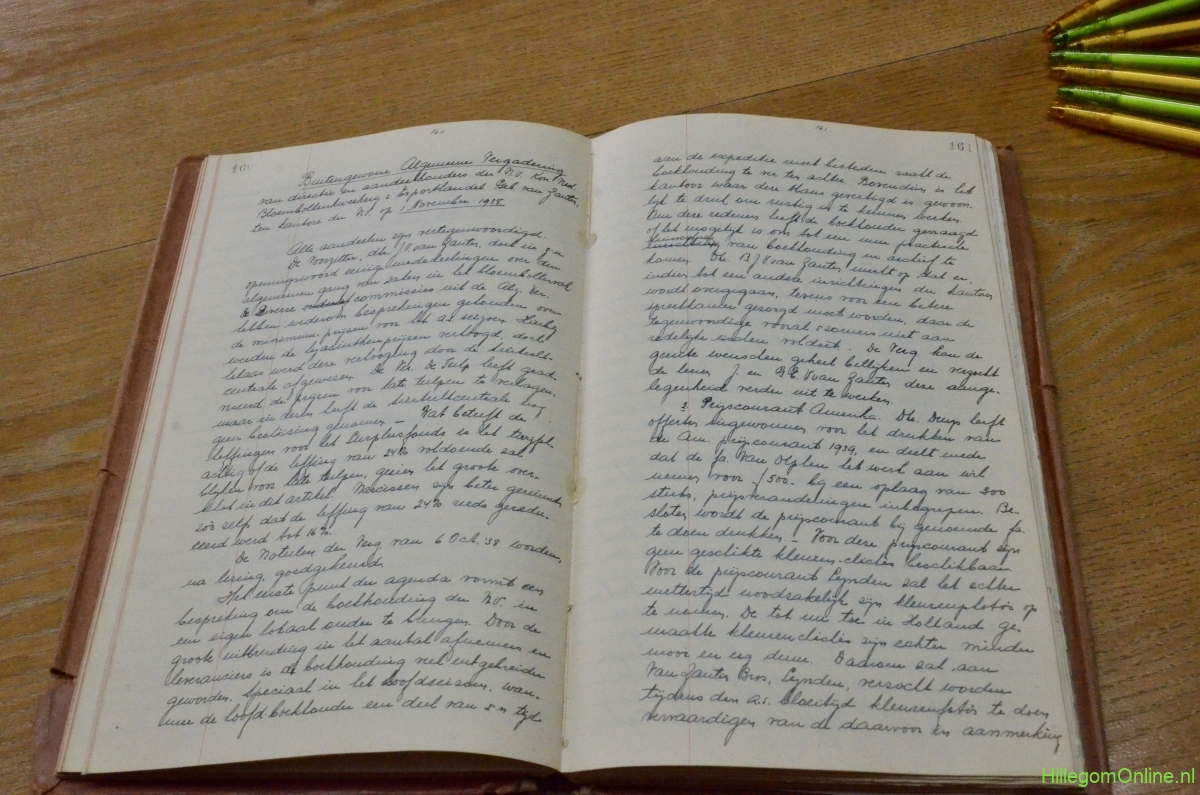 160
160
Buitengewone Algemeene Vergadering
van directie en aandeelhouders der N.V. Kon. Ned.
Bloembollenkweekerij & Exporthandel Geb. van Zanten,
ten kantore der N.V. op 1 November 1938
Alle aandeelen zijn vertegenwoordigd.
De Voorzitter, dhr. J. V. van Zanten, doet in z'n
openingswoord eenig mededeelingen over den
algemeenen gang van zaken in het bloembollenvak
Diverse commissies uit de Alg. Ver.
hebben wederom besprekingen gehouden over
de minimum prijzen voor het a.s. seizoen. Hierbij
werden de hyacinthenprijzen verhoogd, doch
helaas werd deze verhooging door de
centrale afgewezen. De Ver. De Tulp heeft
de prijzen voor late tulpen te verlagen,
maar in deze heeft de nog
geen beslissing genomen. — Wat betreft de
heffingen voor het Surplusfonds is het twijfel-
achtig of de heffing van 24% voldoende zal
blijken voor late tulpen, gezien het groote over-
schot in dit artikel. Narcissen zijn beter geruimd,
zoo zelf dat de heffing van 24% reeds geredu-
ceerd werd tot 16%.
De Notulen der Verg. van 6 Oct. '38 worden,
na lezing, goedgekeurd.
Het eerste punt der agenda vormt een
bespreking om de boekhouding der N.V. in
een eigen lokaal onder te brengen. Door de
groote uitbreiding in het aantal afnemers en
leveranciers is de boekhouding veel uitgebreider
geworden. Speciaal in het hoofdseizoen, wan-
neer de hoofdboekhouder een deel van z'n tijd
161
161
aan de expeditie moet besteden raakt de
boekhouding te ver ten achter. Bovendien is het
kantoor waar deze thans gevestigd is gewoon-
lijk te druk om rustig in te kunnen werken.
Om deze redenen heeft de boekhouder gevraagd
of het mogelijk is om tot een meer practische
van boekhouding en archief te
komen. Dhr. B. J. V. van Zanten merkt op dat en
indien tot een andere inrichtingen der kantoren
wordt overgegaan, tevens voor een betere
spreekkamer gezorgd moet worden, daar de
tegenwoordige vooral 's zomers niet aan
redelijke eischen voldoet. De Verg. kan de
geuite wenschen geheel billijken en verzoekt
de heeren J. en B. V. van Zanten deze aange-
legenheid verder uit te werken.
2. Prijscourant Amerika. Dhr. Deys heeft
offertes ingewonnen voor het drukken van
de Am. prijscourant 1939, en deelt mede
dat de fa. Van Olphen het werk aan wil
nemen voor f 500.- bij een oplaag van 300
stuks, prijsveranderingen inbegrepen. Be-
sloten wordt de prijscourant bij genoemde fa.
te doen drukken. — Voor deze prijscourant zijn
geen geschikte kleuren-clichés beschikbaar.
Voor de prijscourant Eynden zal het echter
mettertijd noodzakelijk zijn kleurenfoto's op
te nemen. De tot nu toe in Holland ge-
maakte kleurenclichés zijn echter minder
mooi en erg duur. Daarom zal aan
Van Zanten Bros, Eynden, verzocht worden
tijdens den a.s. bloeitijd kleurenfoto's te doen
vervaardigen van de daarvoor in aanmerking
HillegomOnline.nl